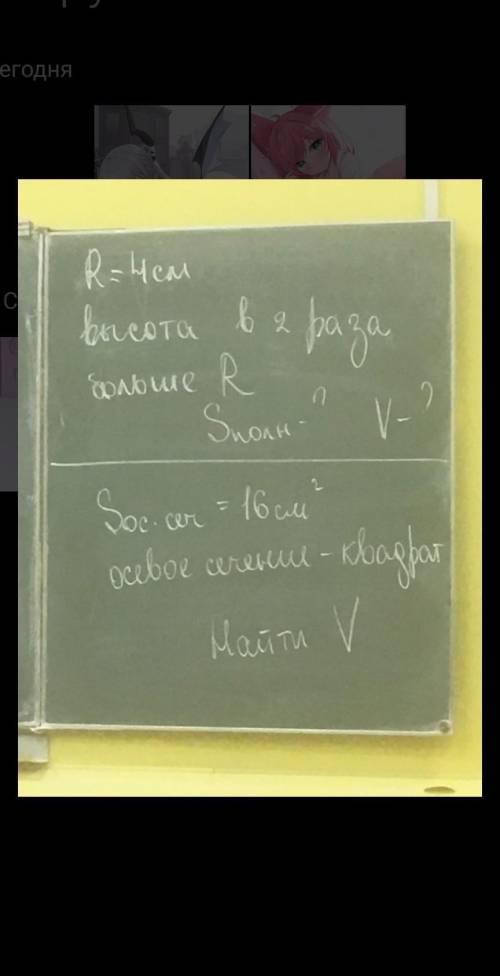 егодня
С
R = 4 см
высота в 2 раза
больше R
Sполн - ? V - ?
Sос. сеч = 16 см²
осевое сечение - квадрат
Найти V